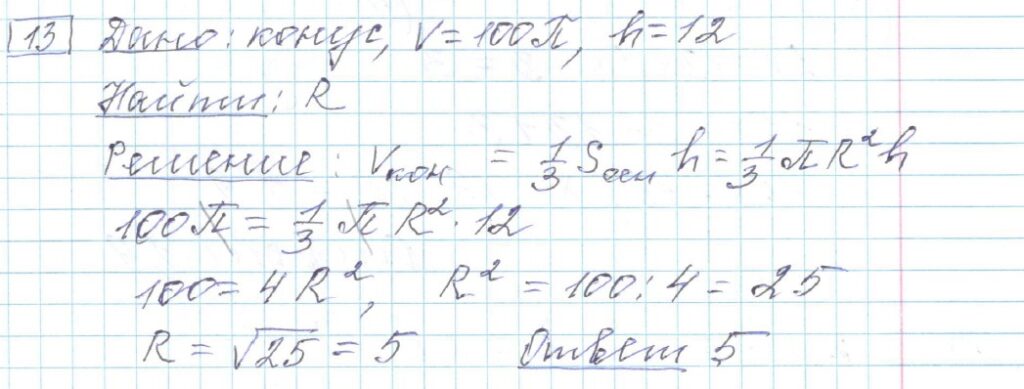 13 Дано: конус, V=100π, h=12
Найти: R
Решение: Vкон = 1/3 Sосн h = 1/3 πR²h
100π = 1/3 π R² · 12
100 = 4R², R² = 100:4 = 25
R = √25 = 5 Ответ 5